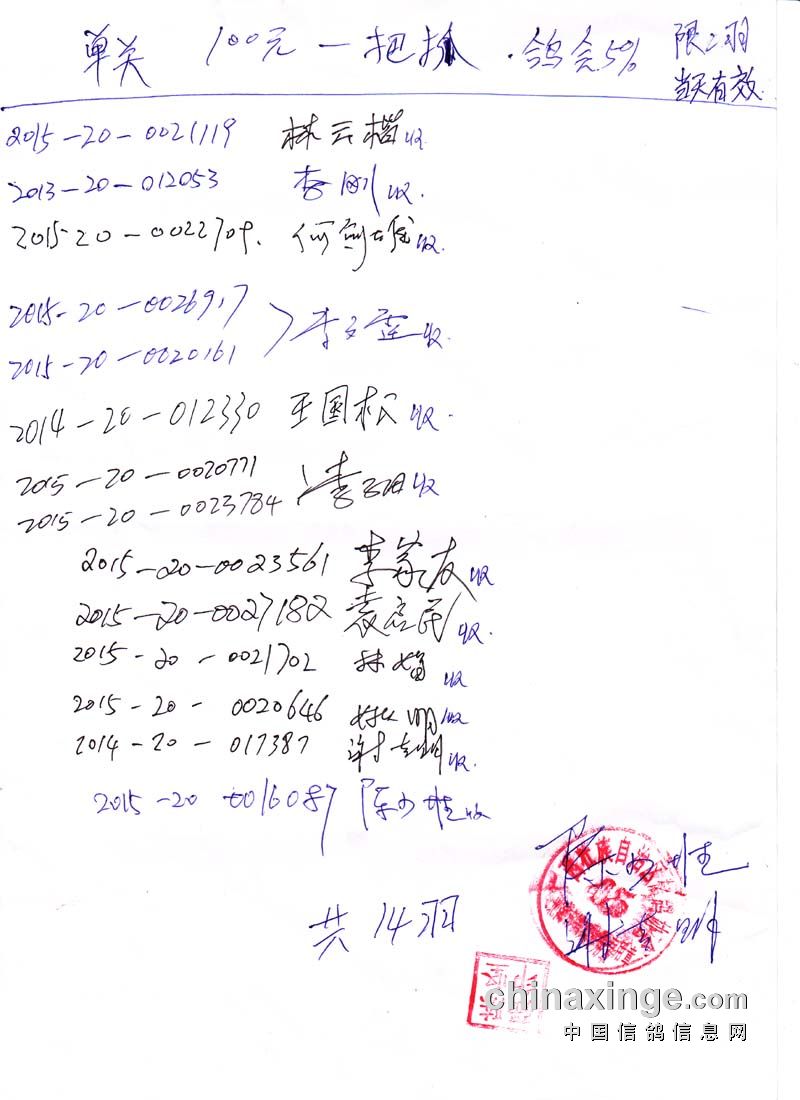 单关 100元一把抓 · 鸽会5% 限二羽
当天有效
2015-20-0021119 林云楷 收
2013-20-012053 李刚 收.
2015-20-0022709. 何剑雄 收.
2015-20-0026917
2015-20-0020161 李 收.
2014-20-012330 王国松 收.
2015-20-0020771
2015-20-0023784 李 收
2015-20-0023561 李家友 收
2015-20-0027182 袁 民 收.
2015-20-0021702 林 收
2015-20-0020646 明 收
2014-20-017387 谢 明 收.
2015-20-0016087 陈少雄 收
共14羽
chinaxinge.com
中国信鸽信息网